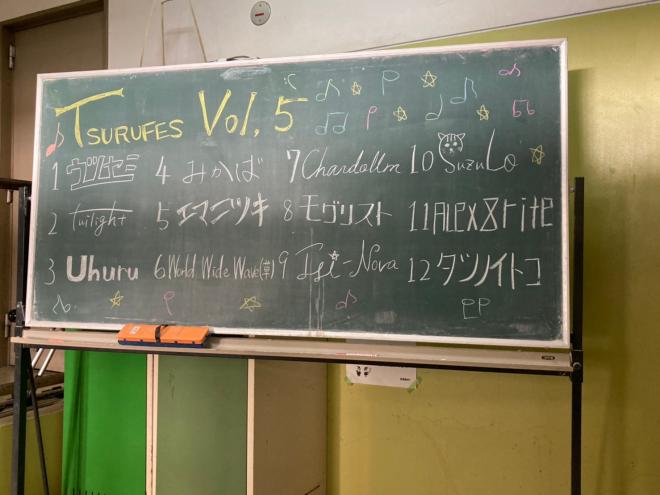 TSURUFES Vol, 5
1 ウツセミ 4 みかば 7 Chardollm 10 SuzuLo
2 twilight 5 エマニツキ 8 モグリスト 11 ALEX8rite
3 Uhuru 6 World Wide Wave(草) 9 Isi-Nova 12 タツノイトコ